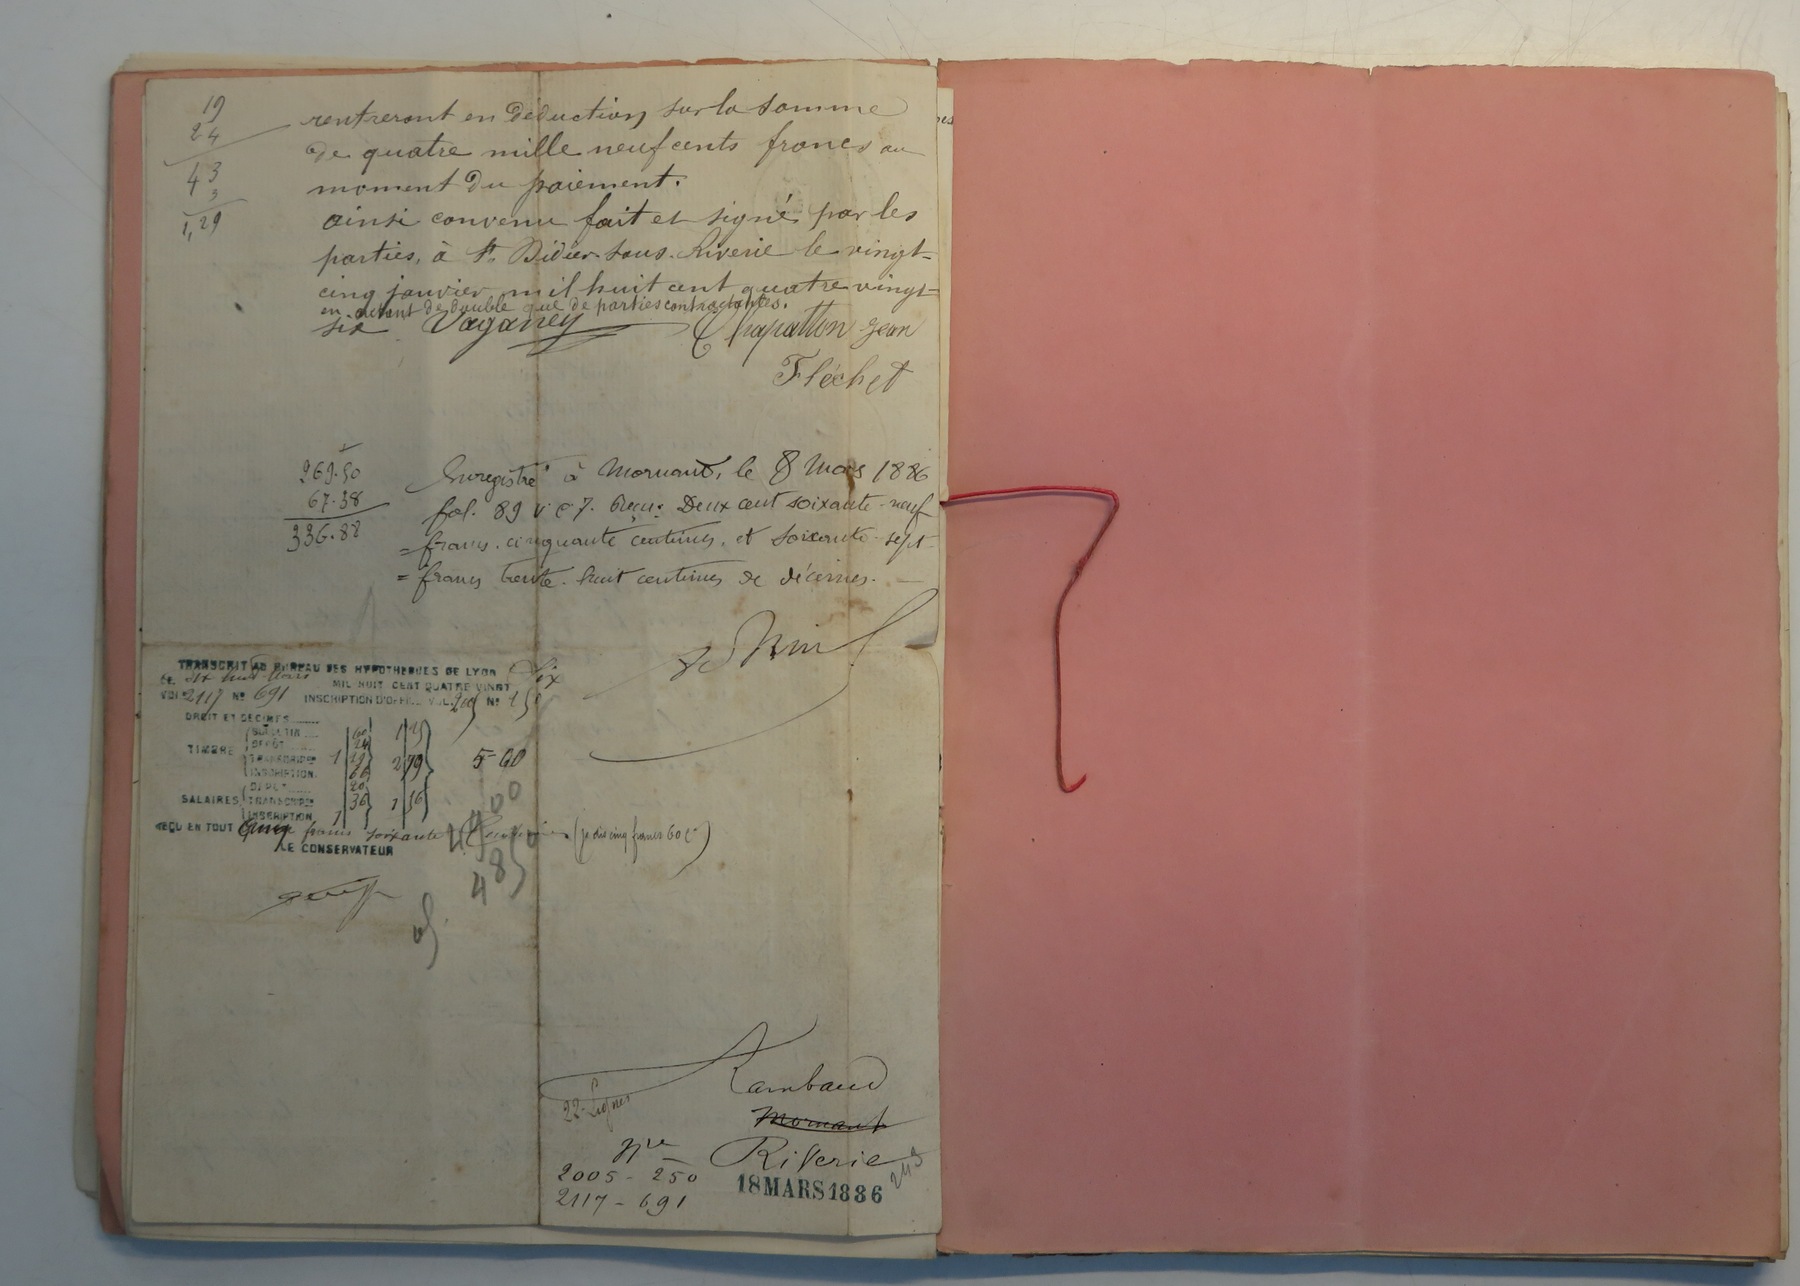 19
24
43
3
1,29
rentreront en déduction sur la somme
de quatre mille neuf cents francs au
moment du paiement.
ainsi convenu fait et signé par les
parties, à St Didier-sous-Riverie le vingt-
cinq janvier mil huit cent quatre vingt-
en autant de double que de parties contractantes.
six Vaganey Chapatton Jean
Fléchet
269.50
67.38
336.88
Enregistré à Mornant, le 8 Mars 1886
fol. 89 v c 7. Reçu: Deux cent soixante-neuf
=francs cinquante centimes, et soixante-sept
=francs trente-huit centimes de décimes.
TRANSCRIT AU BUREAU DES HYPOTHEQUES DE LYON
LE dix huit Mars MIL HUIT CENT QUATRE VINGT Six
VOL 2117 No 691 INSCRIPTION D'OFFICE VOL. 2005 No 250
DROIT ET DECIMES
TIMBRE
BULLETIN 60
DEPOT 24
TRANSCRIPon 1 19
INSCRIPTION 66
5-60
SALAIRES
DEPOT 20
TRANSCRIPon 36
INSCRIPTION 1
REÇU EN TOUT Cinq francs soixante centimes (je dis cinq francs 60 c)
LE CONSERVATEUR
4900
4850
Rambaud
22 Lignes
Mornant
Riverie
2005 - 250
2117 - 691
18 MARS 1886
243